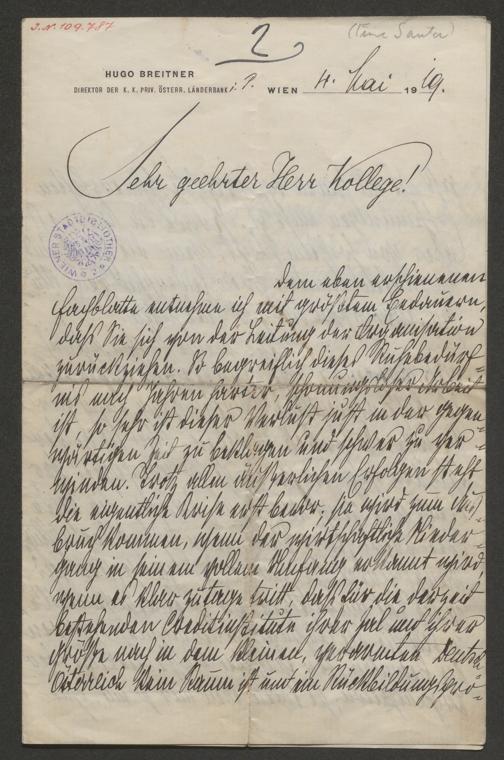 J.N. 109.787
2
HUGO BREITNER
DIREKTOR DER K. K. PRIV. ÖSTERR. LÄNDERBANK i. P.
WIEN 4. Mai 1919.
Sehr geehrter Herr Kollege!
WIENER STADTBIBLIOTHEK
Dem eben erschienenen
Fachblatte entnehme ich mit größtem Bedauern,
daß Sie sich von der Leitung der Organisation
zurückziehen. So begreiflich dieses Ruhebedürf-
nis nach Jahren harter, schonungsloser Arbeit
ist, so sehr ist dieser Verlust just in der gegen-
wärtigen Zeit zu beklagen und schwer zu ver-
winden. Trotz allen äußerlichen Erfolgen steht
die eigentliche Krise erst bevor, sie wird zum Aus-
bruch kommen, wenn der wirtschaftliche Nieder-
gang in seinem vollen Umfang erkannt wird
wenn es klar zutage tritt, daß für die derzeit
bestehenden Creditinstitute ihrer Zal und ihrer
Größe nach in dem kleinen, verarmten Deutsch-
Österreich kein Raum ist und ein Rückbildungspro-